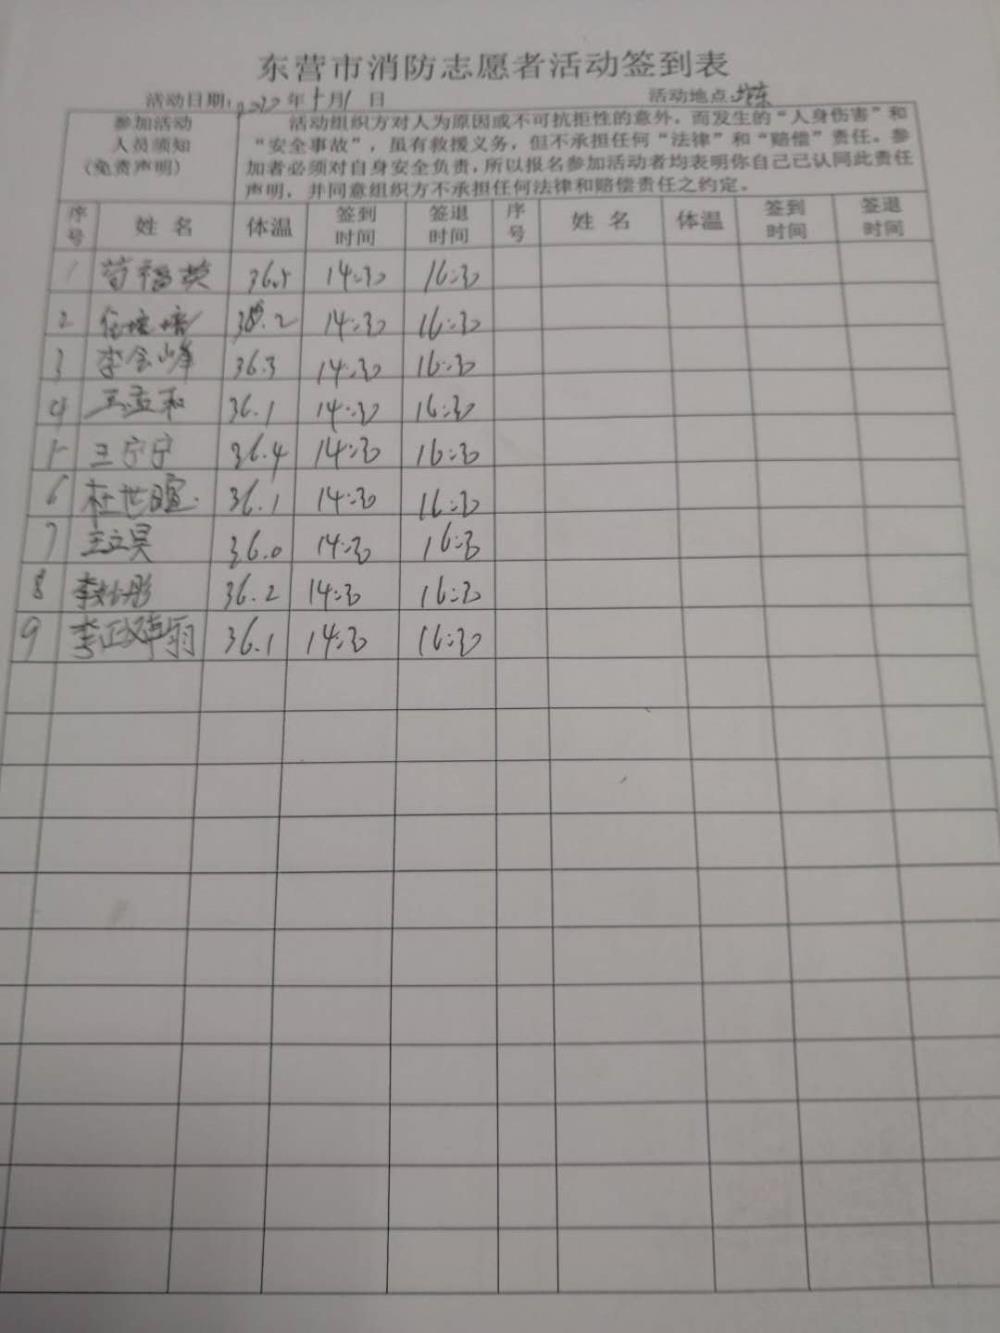 东营市消防志愿者活动签到表
活动日期: 年 月 日 活动地点
参加活动
人员须知
(免责声明)
活动组织方对人为原因或不可抗拒性的意外，而发生的“人身伤害”和
“安全事故”，虽有救援义务，但不承担任何“法律”和“赔偿”责任。参
加者必须对自身安全负责，所以报名参加活动者均表明你自己已认同此责任
声明，并同意组织方不承担任何法律和赔偿责任之约定。
序号 姓名 体温 签到时间 签退时间 序号 姓名 体温 签到时间 签退时间
1 苟福英 36.5 14:30 16:30
2 任培培 36.2 14:30 16:30
3 李金峰 36.3 14:30 16:30
4 王孟和 36.1 14:30 16:30
5 王宁宁 36.4 14:30 16:30
6 杜世暄 36.1 14:30 16:30
7 王立昊 36.0 14:30 16:30
8 李 彤 36.2 14:30 16:30
9 李政 36.1 14:30 16:30